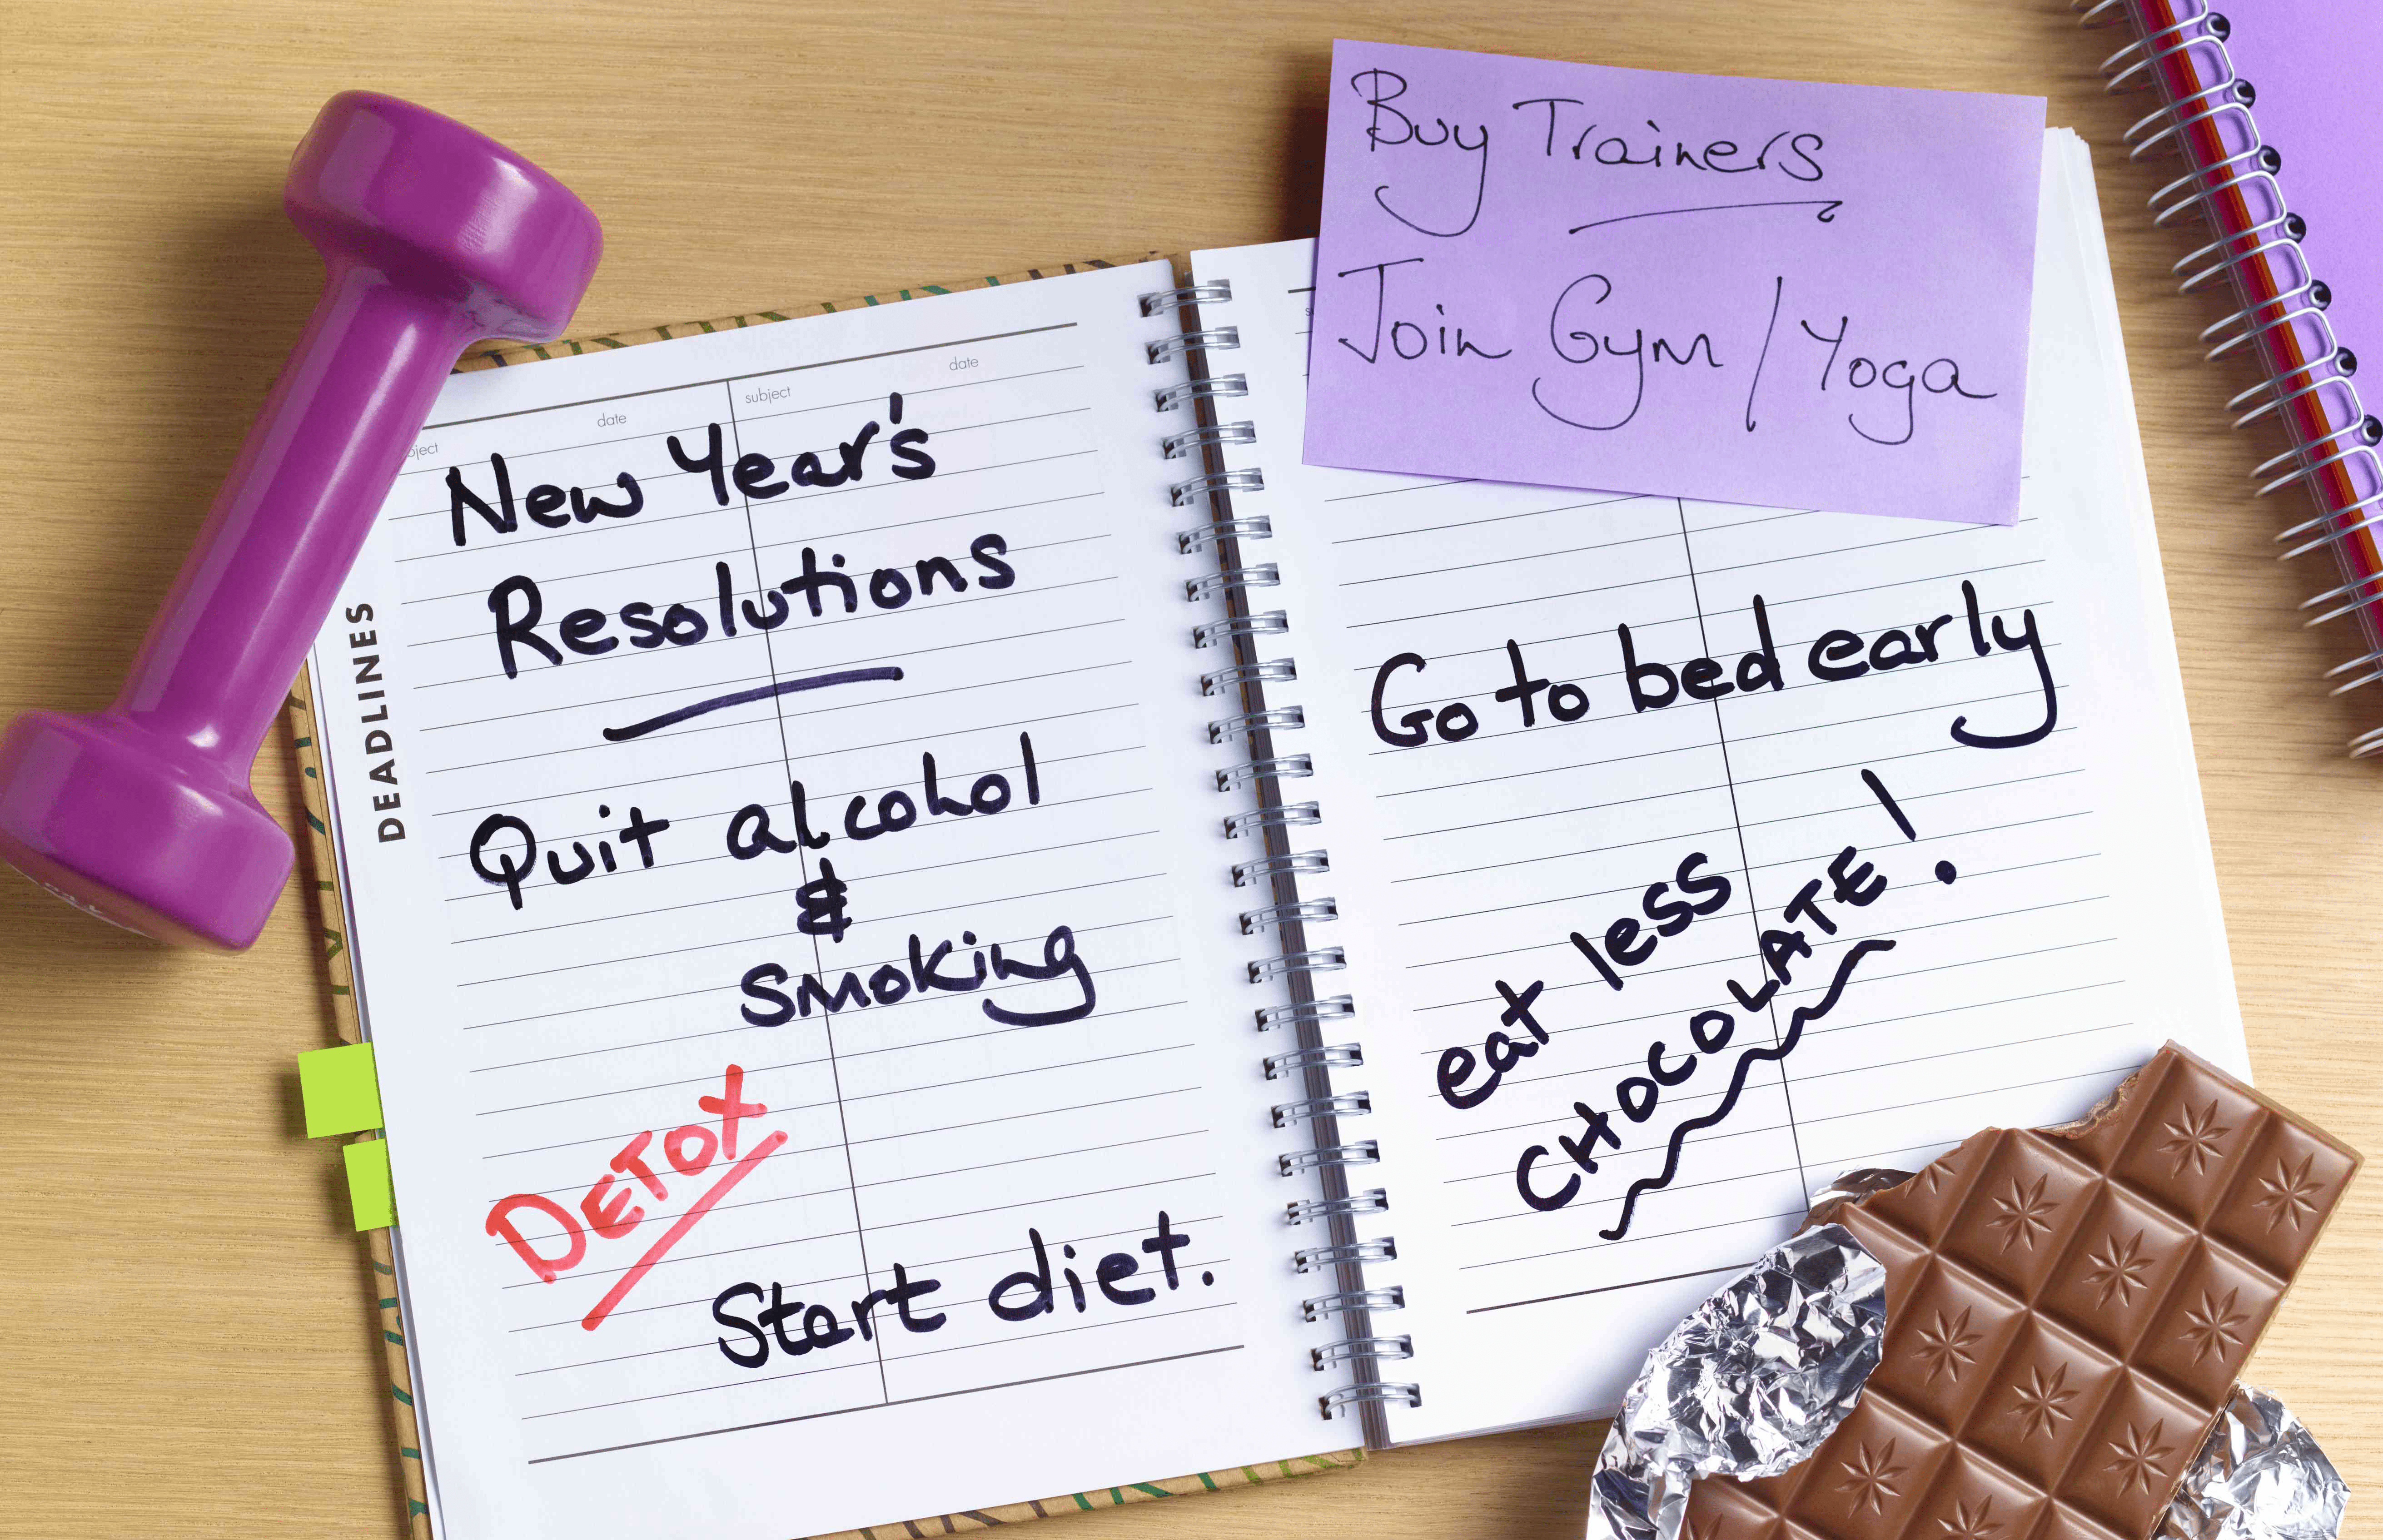 date
subject
date
New Year's
Resolutions
DEADLINES
Quit alcohol
&
smoking
DETOX
Start diet.
Buy Trainers
Join Gym / Yoga
Go to bed early
eat less
CHOCOLATE!